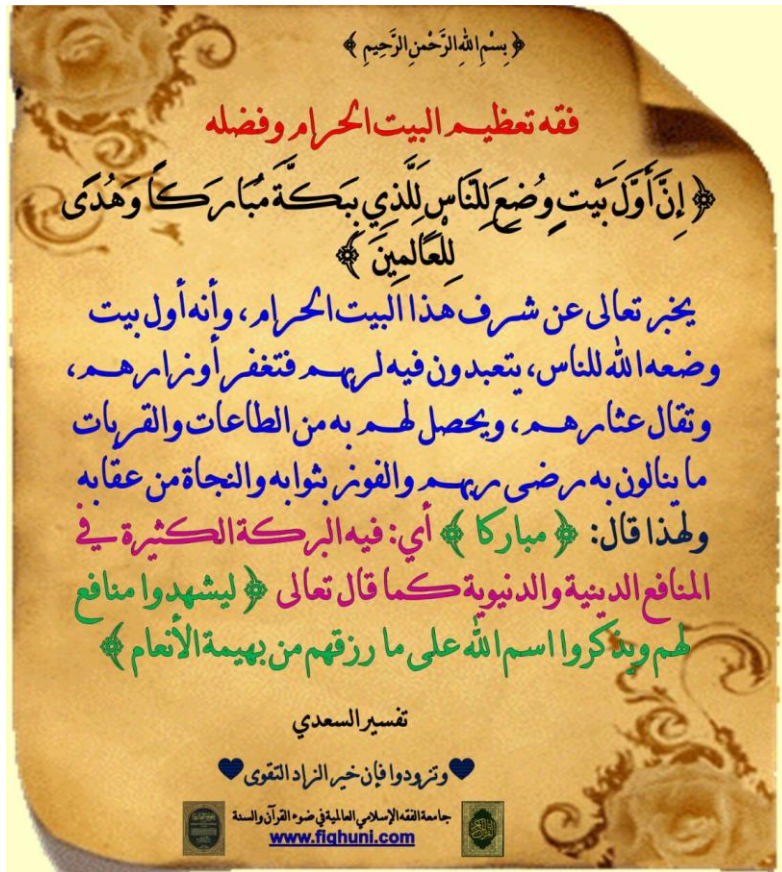 ﴿ بِسْمِ اللهِ الرَّحْمنِ الرَّحِيمِ ﴾
فقه تعظيم البيت الحرام وفضله
﴿ إِنَّ أَوَّلَ بَيْتٍ وُضِعَ لِلنَّاسِ لَلَّذِي بِبَكَّةَ مُبَارَكًا وَهُدًى
لِلْعَالَمِينَ ﴾
يخبر تعالى عن شرف هذا البيت الحرام، وأنه أول بيت
وضعه الله للناس، يتعبدون فيه لربهم فتغفر أوزارهم،
وتقال عثارهم، ويحصل لهم به من الطاعات والقربات
ما ينالون به رضى ربهم والفوز بثوابه والنجاة من عقابه
ولهذا قال: ﴿ مباركا ﴾ أي: فيه البركة الكثيرة في
المنافع الدينية والدنيوية كما قال تعالى ﴿ ليشهدوا منافع
لهم ويذكروا اسم الله على ما رزقهم من بهيمة الأنعام ﴾
تفسير السعدي
♥وتزودوا فإن خير الزاد التقوى♥
جامعة الفقه الإسلامي العالمية في ضوء القرآن والسنة
www.fiqhuni.com